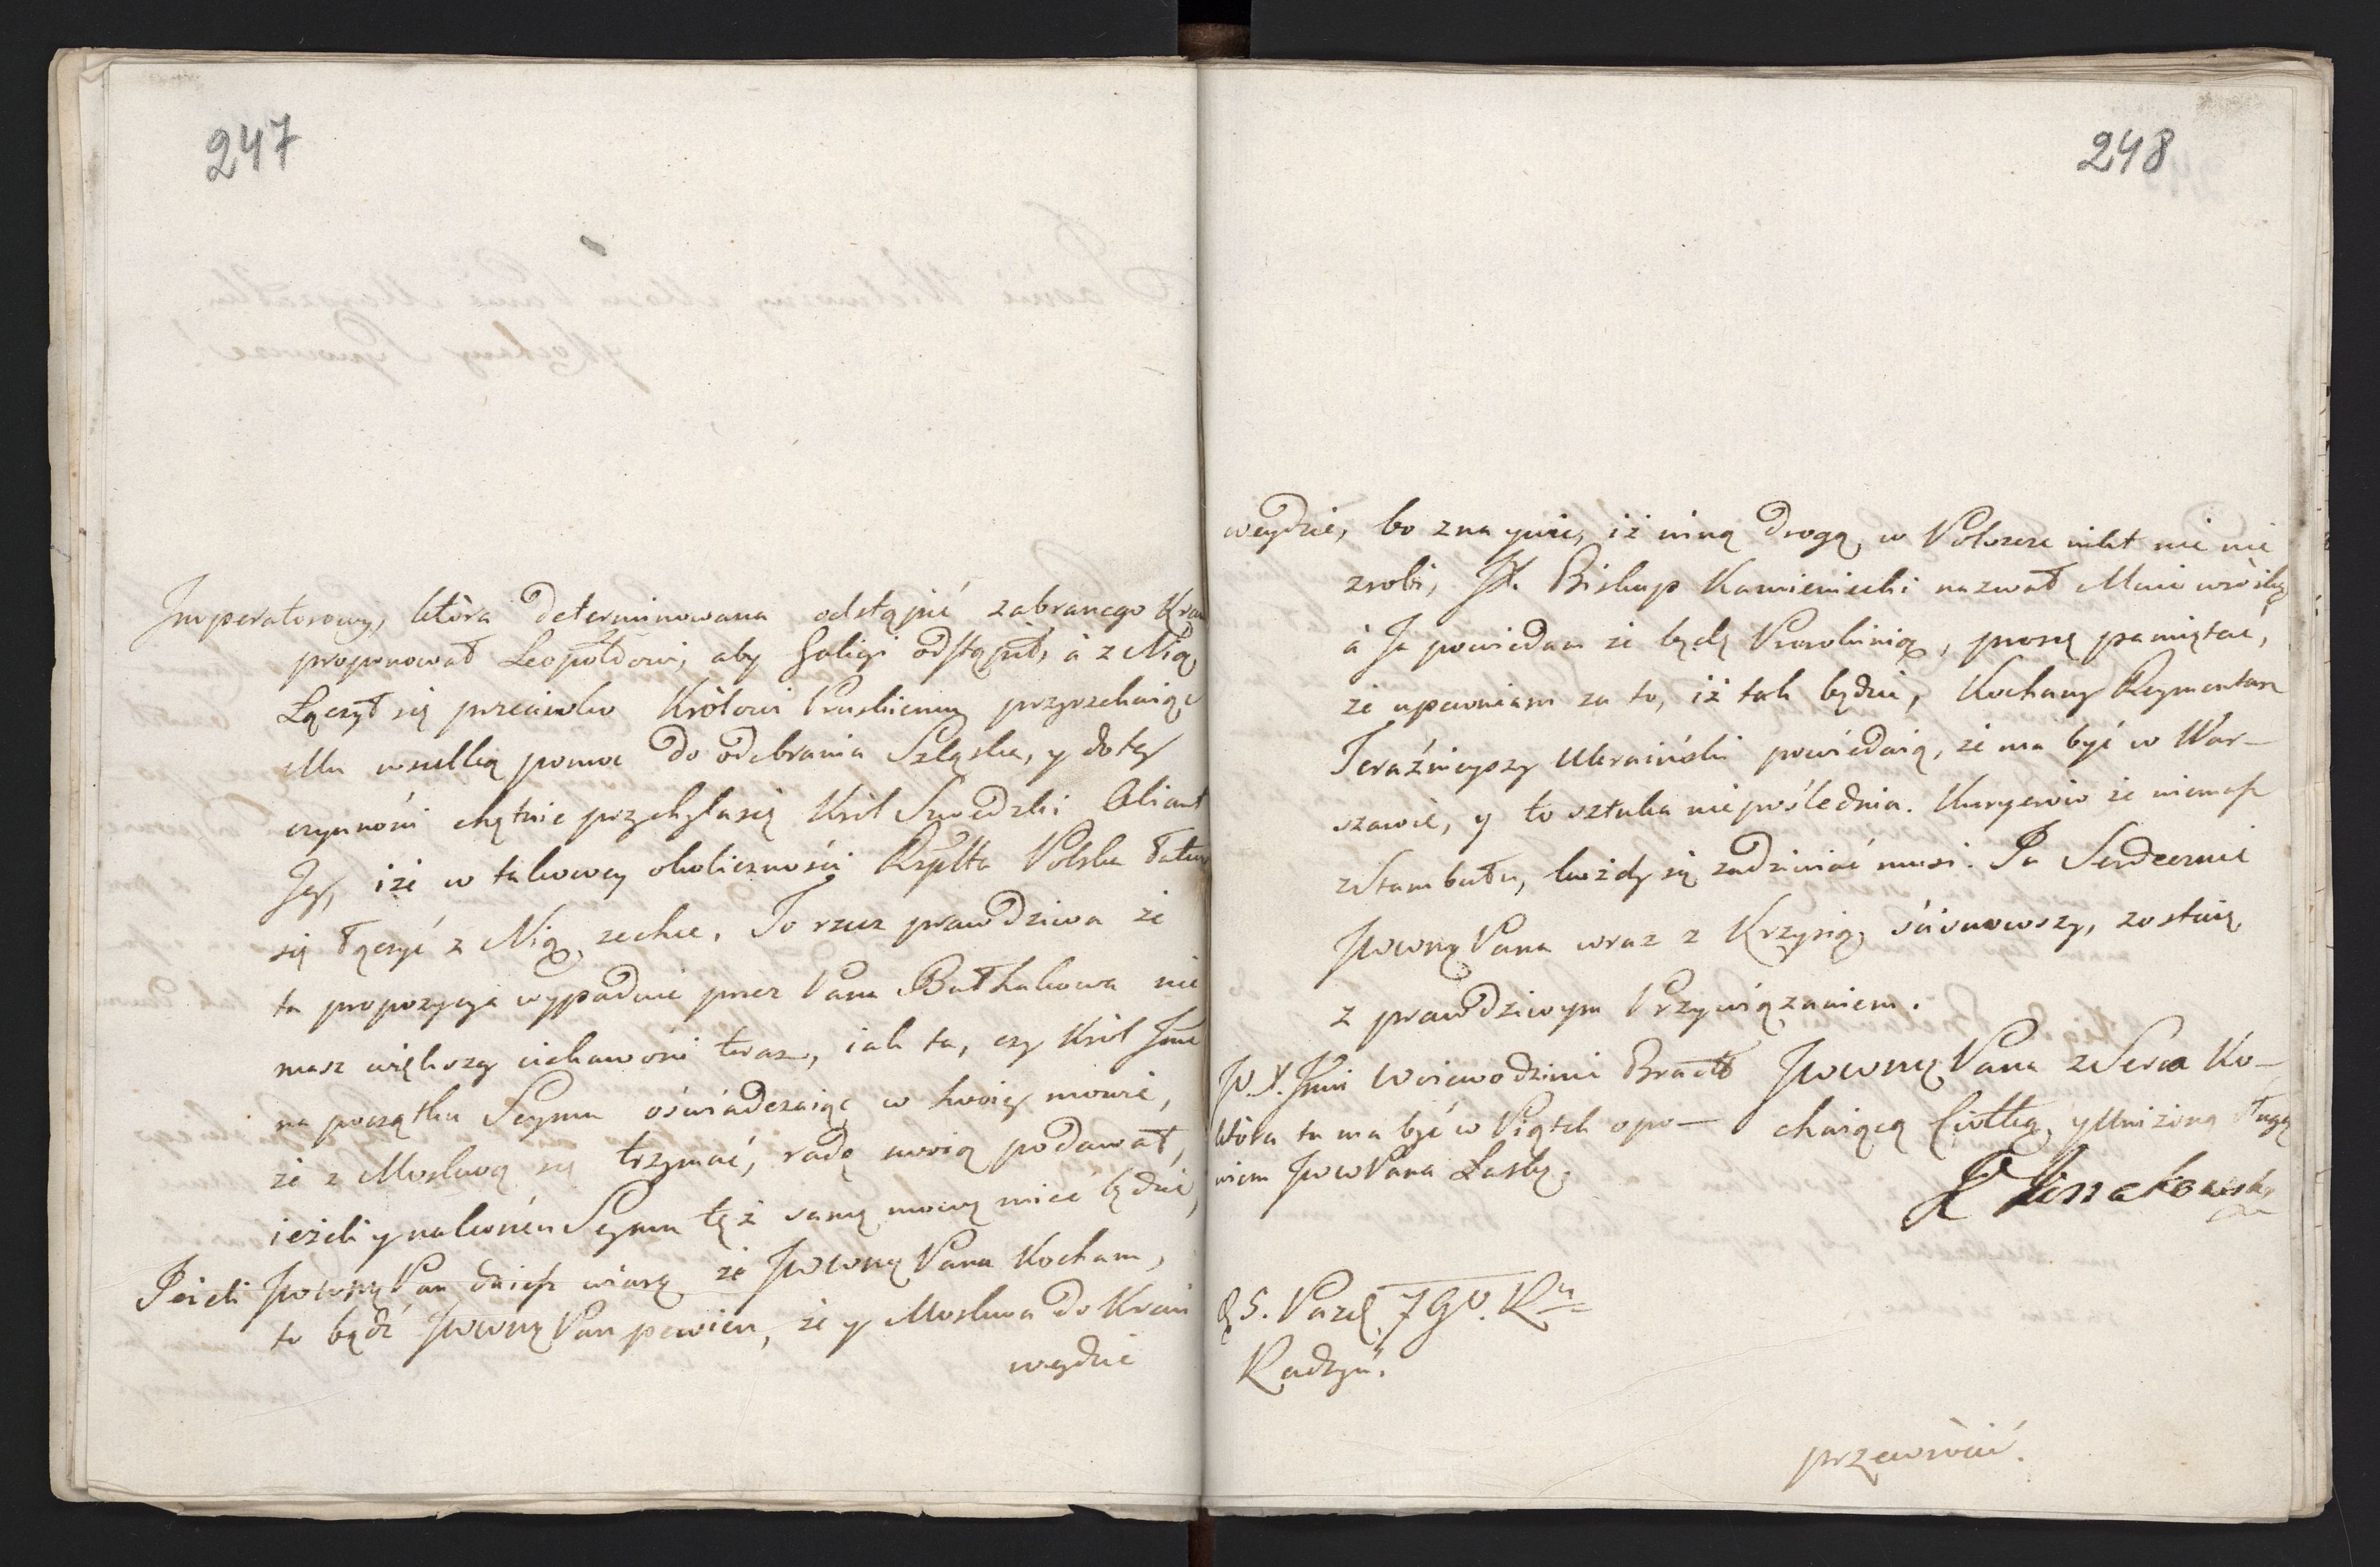 247
Imperatorowy, ktòra determinowana odstąpić zabranego Kraiu
proponował Leopołdowi, aby Galicyi odstąpił, à z Nią
Łączył się przeciwko Kròlowi Pruskiemu przyrzekaiąc
Mu wszelką pomoc do odebrania Szląska, y do tey
czynności chętnie przychyla się Kròl Szwedzki Aliant
Jey, iże w takowey okoliczności Rzplta Polska łatwo
się łączyć z Nią zechce. To rzecz prawdziwa że
ta propozycya wypadnie przez Pana Bułhakowa nie
masz większey ciekawości teraz, iak ta, czy Kròl Jmć
na początku Seymu oświadczaiąc w swoiey mowie,
że z Moskwą się trzymać, radę swoią podawał,
ieżeli y na końcu Seymu tęż samę mowę mieć będzie,
Jeżeli JWWMę Pan daiesz wiarę że JWWMę Pana Kocham,
to bądź JWWMę Pan pewien, że y Moskwa do Kraiu
weydzie
248
weydzie, bo zna
iż inną drogą w Polszcze nikt nic nie
zrobi, JX. Biskup Kamieniecki nazwał Mnie wròżką
à Ja powiedam że będę Prorokinią, proszę pamiętać,
że upewniam za to, iż tak będzie, Kochany Regimentarz
Teraźnieyszy Ukraiński powiedaią, że ma być w War-
szawie, y to sztuka nie poślednia. Kuryerów że niemasz
z Stambułu, każdy się zadziwiać musi. Ja Serdecznie
JWWMę Pana wraz z Krzysią uścisnąwszy, zostaię
z prawdziwym Przywiązaniem.
JWWMę Pana z Serca Ko-
chaiącą Ciotką y Uniżoną sługą
J.X. Jmći Woiewodzinie Bracł
ktòra tu ma być w Piątek opo-
wiem JWW Pana Łaskę.
d 5. Paźd. 790. Ru
Radzyń.
przewròcić.